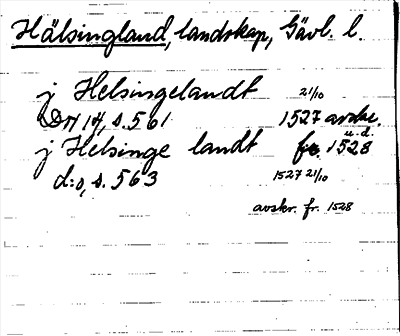 Hälsingland, landskap, Gävl. l.
j Helsingelandt 21/10
DN 14, s. 561 1527 avskr.
u.d.
j Helsinge landt fr. 1528
d:o, s. 563 1527 21/10
avskr. fr. 1528